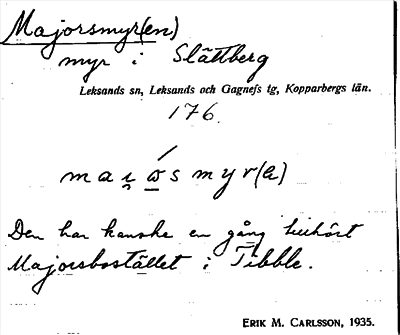 Majorsmyr(en)
myr i Slättberg
Leksands sn, Leksands och Gagnefs tg, Kopparbergs län.
176.
Den har kanske en gång tillhört
Majorsbostället i Tibble.
ERIK M. CARLSSON, 1935.